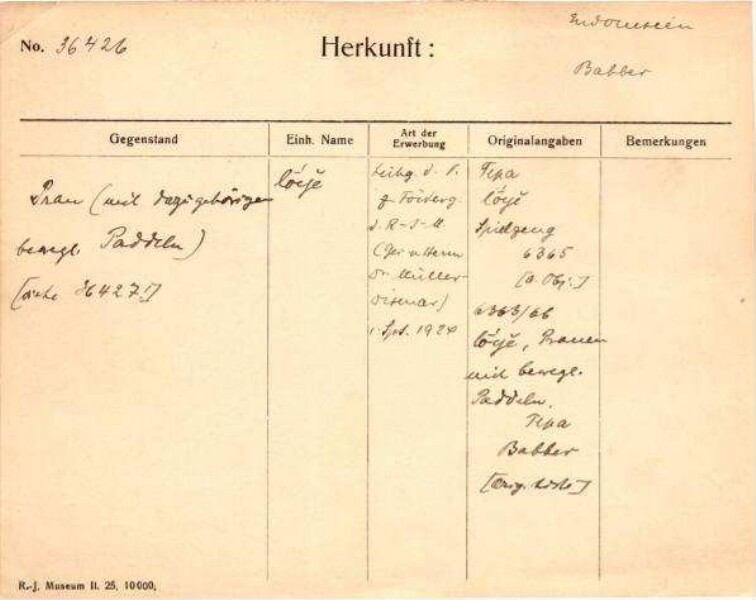 Indonesien
No. 36426
Herkunft:
Babber
Gegenstand
Einh. Name
Art der Erwerbung
Originalangaben
Bemerkungen
Prau (mit dazugehörigen
bewegl. Paddeln)
[siehe 36427!]
lóije
d. V.
z. Förderg.
d. R-J-M.
(Ser. v. Herrn
Dr. Müller-
Wismar)
Spt. 1924
Tepa
lóije
Spielzeug
6365
[a. Obj.]
6363/66
lóije, Prauen
mit bewegl.
Paddeln.
Tepa
Babber
[Orig. Liste]
R.-J. Museum II. 25. 10000.